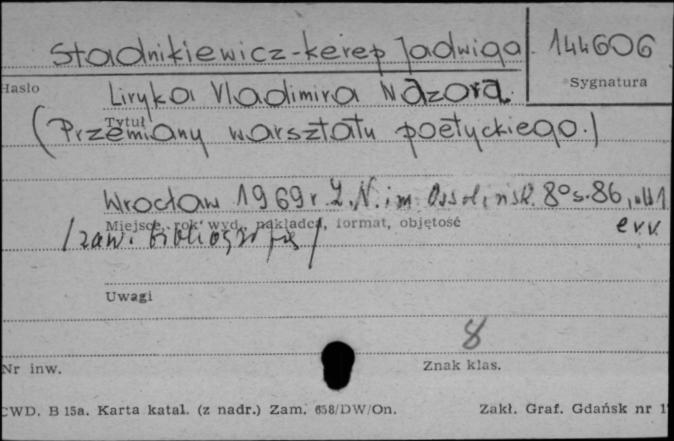 Stadnikiewicz-Kerep Jadwiga
144606
Hasło
Sygnatura
Liryka Vladimira Nazora.
Tytuł
(Przemiany warsztatu poetyckiego.)
Wrocław 1969 r. Z. N. im. Ossolińsk. 8° s. 86,
Miejsce, rok wyd., nakładca, format, objętość
/zaw. bibliografię/
Uwagi
8
Nr inw.
Znak klas.
CWD. B 15a. Karta katal. (z nadr.) Zam. 658/DW/On.
Zakł. Graf. Gdańsk nr 1